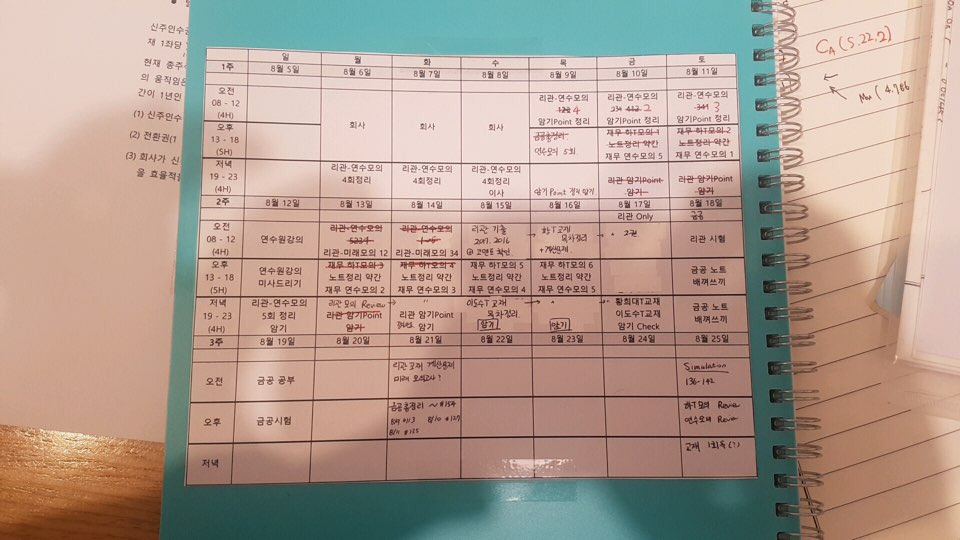 신주인수
재 1좌당
현재 총주
의 움직임은
간이 1년인
(1) 신주인수
(2) 전환권(1
(3) 회사가 신
을 효율적
일 월 화 수 목 금 토
1주 8월 5일 8월 6일 8월 7일 8월 8일 8월 9일 8월 10일 8월 11일
오전
08 - 12
(4H)
리관-연수모의
4
암기Point 정리
리관-연수모의
234 2
암기Point 정리
리관-연수모의
341 3
암기Point 정리
회사 회사 회사
오후
13 - 18
(5H)
금공총정리
연수모의 5회
재무 하T모의 1
노트정리 약간
재무 연수모의 5
재무 하T모의 2
노트정리 약간
재무 연수모의 1
저녁
19 - 23
(4H)
리관-연수모의
4회정리
리관-연수모의
4회정리
리관-연수모의
4회정리
이사
암기 Point 정리 암기
리관 암기Point
암기
리관 암기Point
암기
2주 8월 12일 8월 13일 8월 14일 8월 15일 8월 16일 8월 17일 8월 18일
리관 Only 금공
오전
08 - 12
(4H)
연수원강의
리관-연수모의
리관-미래모의 12
리관-연수모의
리관-미래모의 34
리관 기출
2017. 2016
→ 하T교재
목차정리
→ "
리관 시험
오후
13 - 18
(5H)
연수원강의
미사드리기
재무 하T모의 3
노트정리 약간
재무 연수모의 2
재무 하T모의 4
노트정리 약간
재무 연수모의 3
재무 하T모의 5
노트정리 약간
재무 연수모의 4
재무 하T모의 6
노트정리 약간
재무 연수모의 5
금공 노트
배껴쓰끼
저녁
19 - 23
(4H)
리관-연수모의
5회 정리
암기
리관 모의 Review →
리관 암기Point
암기
"
리관 암기Point
암기
이도수T교재
목차정리
암기
→ "
암기
→ 황희대T교재
이도수T교재
암기 Check
금공 노트
배껴쓰끼
3주 8월 19일 8월 20일 8월 21일 8월 22일 8월 23일 8월 24일 8월 25일
오전
금공 공부
리관 교재 계산문제
미래 모의고사?
Simulation
136-142
오후
금공시험
금공총정리 ~ #154
8/9 #113 8/10 #127
8/11 #135
하T모의 Review
연수모의 Review
저녁
교재 1회독(?)
CA (5.22.2)